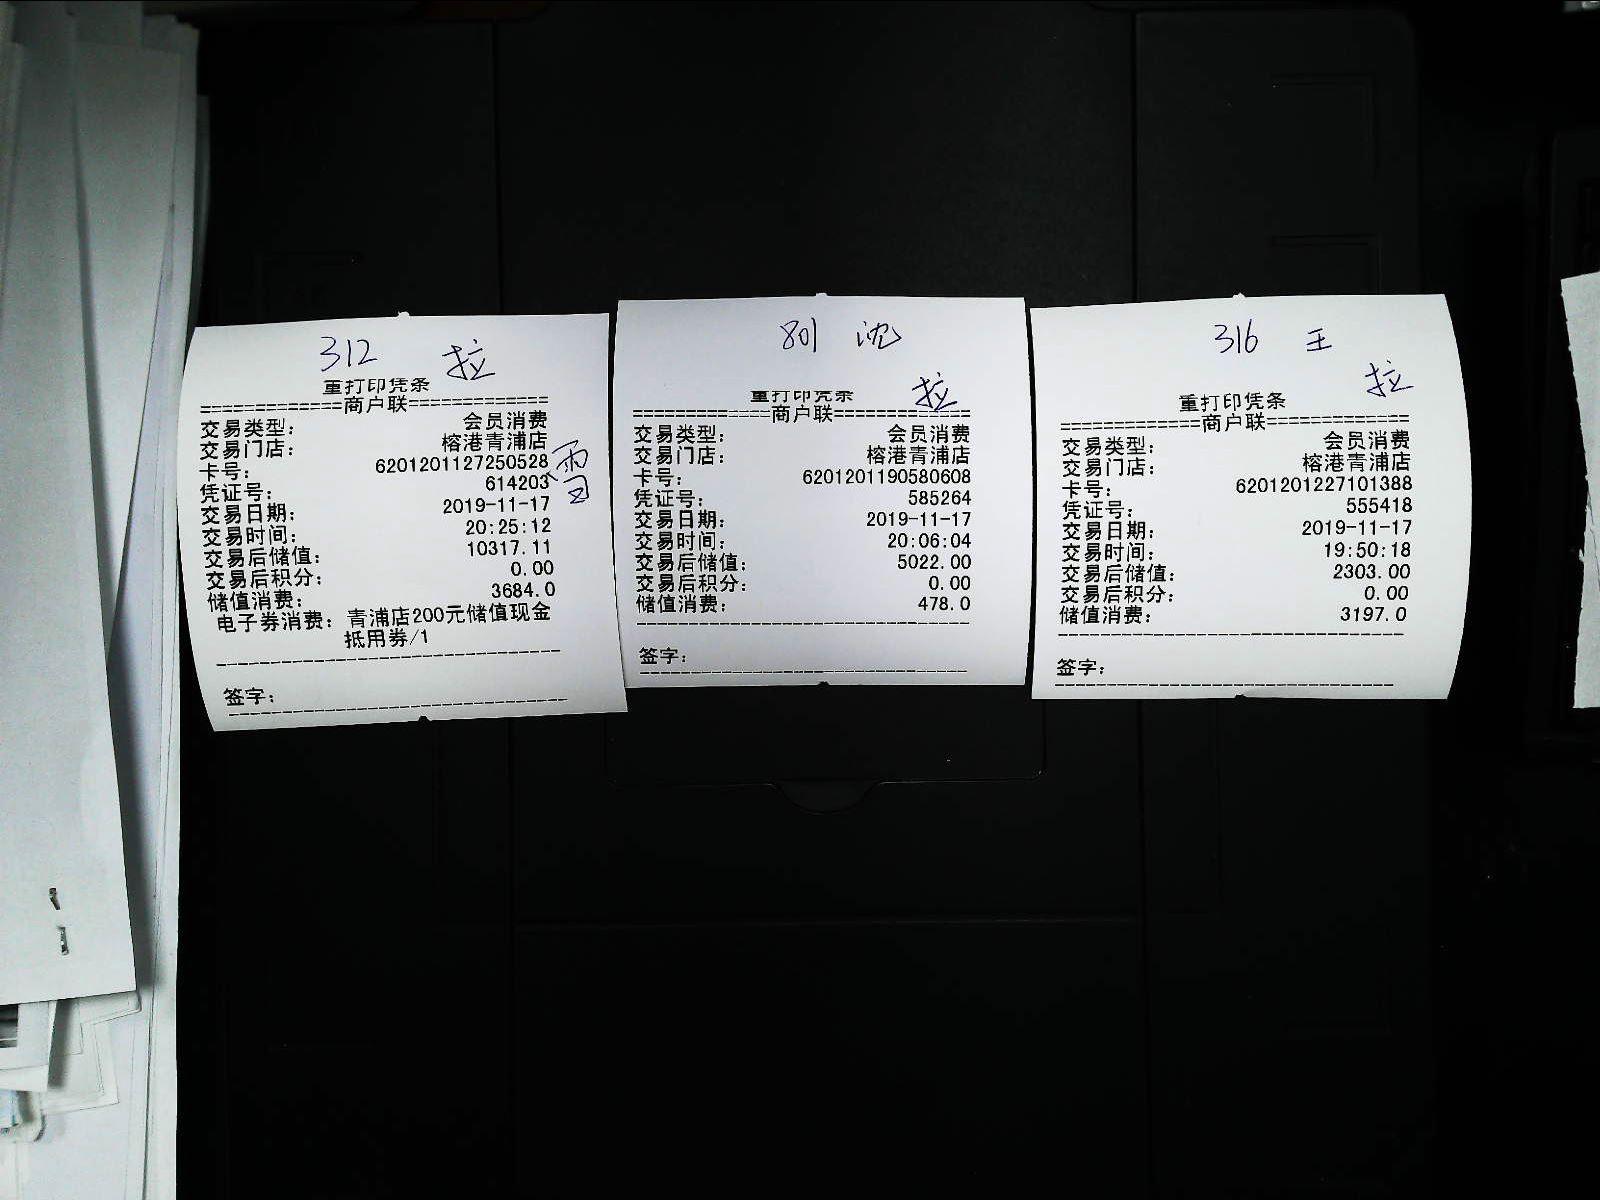 312 拉
重打印凭条
=============商户联=============
交易类型： 会员消费
交易门店： 榕港青浦店
卡号： 6201201127250528
凭证号： 614203
雪
交易日期： 2019-11-17
交易时间： 20:25:12
交易后储值： 10317.11
交易后积分： 0.00
储值消费： 3684.0
电子券消费：青浦店200元储值现金
抵用券/1
签字：
801 沈
拉
重打印凭条
=============商户联=============
交易类型： 会员消费
交易门店： 榕港青浦店
卡号： 6201201190580608
凭证号： 585264
交易日期： 2019-11-17
交易时间： 20:06:04
交易后储值： 5022.00
交易后积分： 0.00
储值消费： 478.0
签字：
316 王
拉
重打印凭条
=============商户联=============
交易类型： 会员消费
交易门店： 榕港青浦店
卡号： 6201201227101388
凭证号： 555418
交易日期： 2019-11-17
交易时间： 19:50:18
交易后储值： 2303.00
交易后积分： 0.00
储值消费： 3197.0
签字：